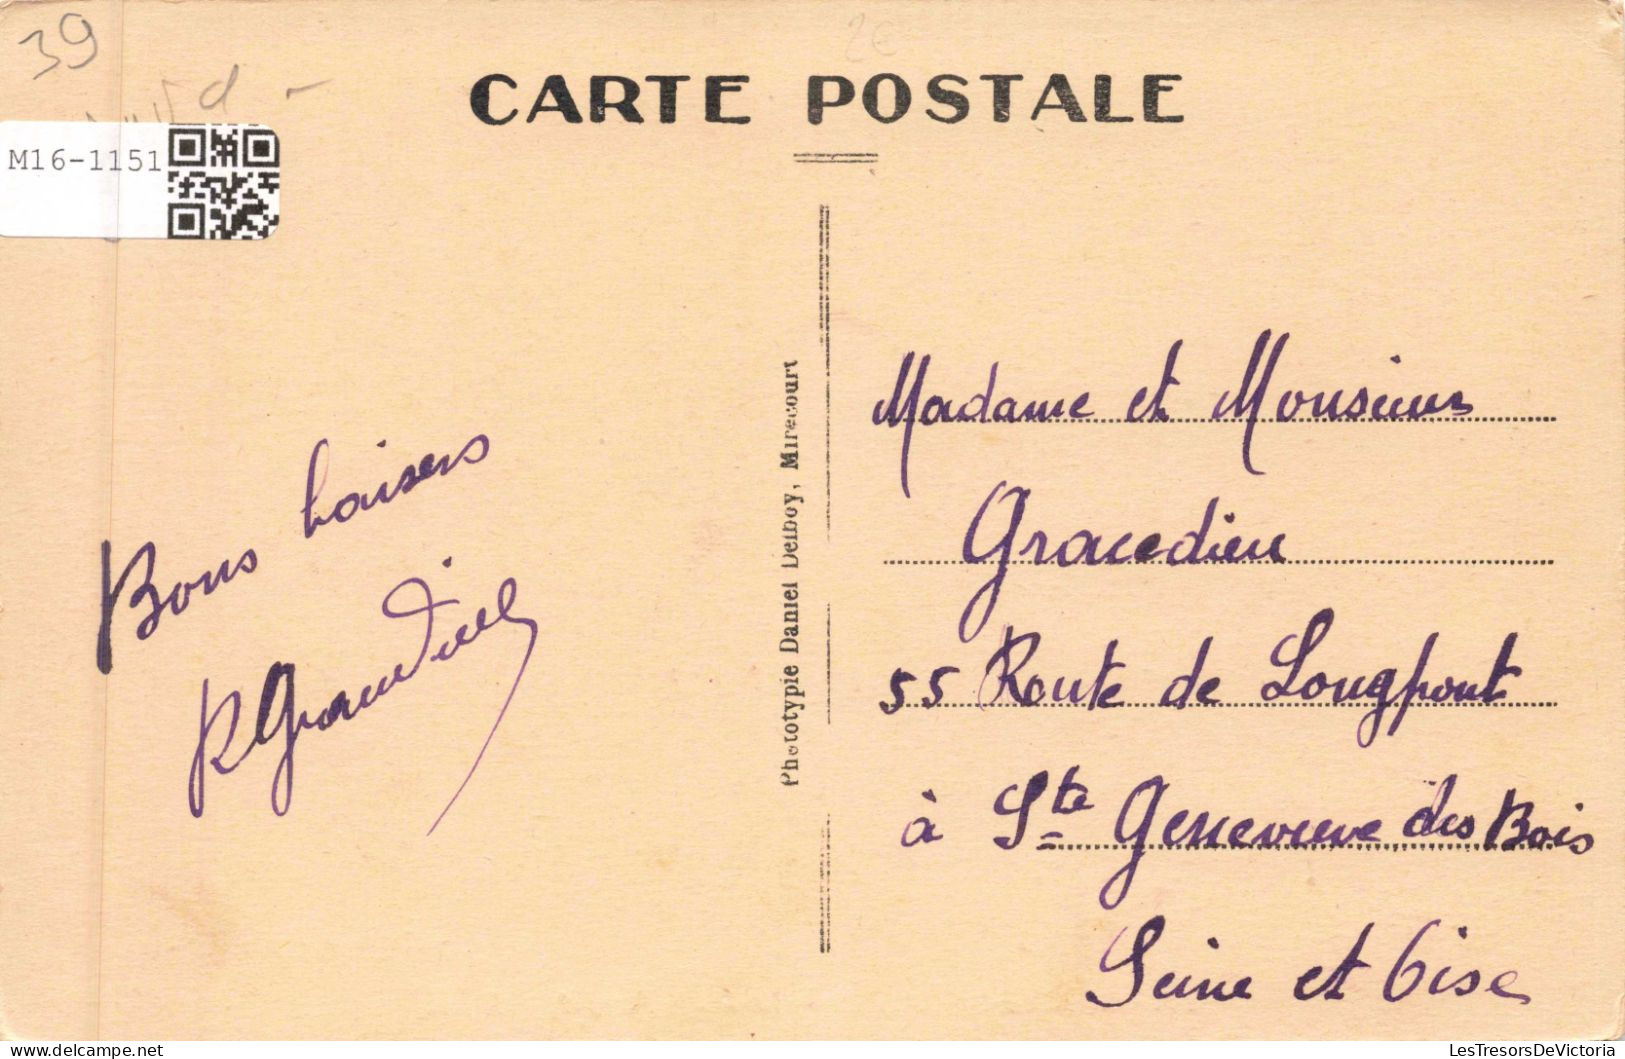 39
2€
CARTE POSTALE
M16-1151
Bons baisers
R Gracedieu
Phototypie Daniel Delboy, Mirecourt
Madame et Monsieur
Gracedieu
55 Route de Longpont
à Ste Genevieve des Bois
Seine et Oise
delcampe.net
LesTresorsDeVictoria